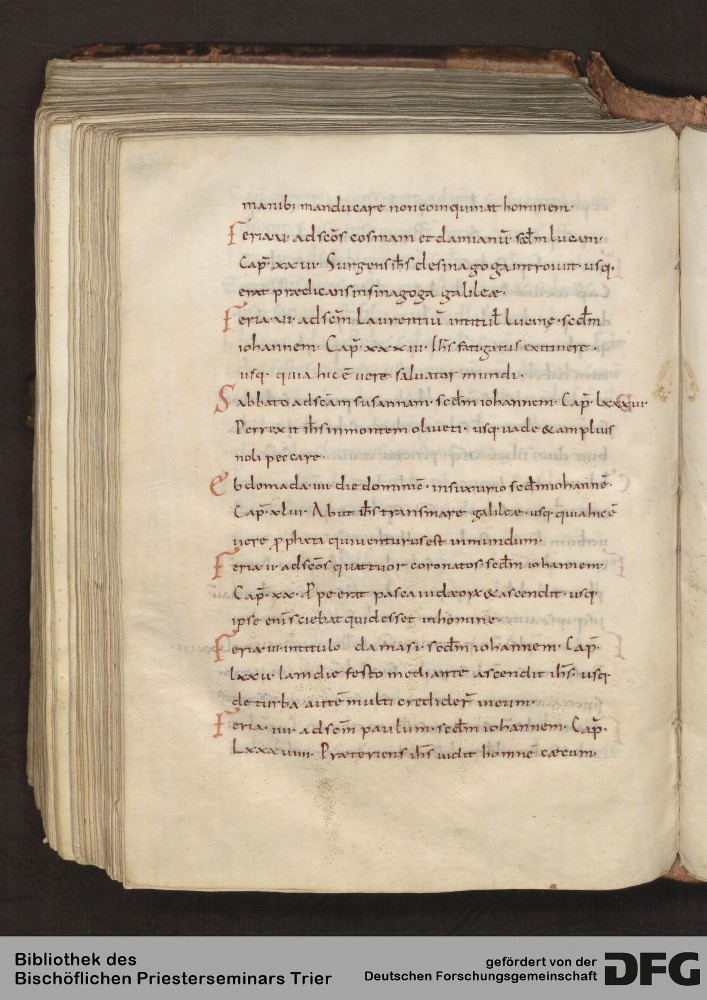 manibus manducare non coinquinat hominem·
Feria·v· ad scōs cosmam et damianū· scdm lucam·
Cap̄· xxvi· Surgens ihs de sinagoga introivit· usq·
erat prædicans in sinagogis galileæ·
Feria·vi· ad scm Laurentiū intitul̄ lucinę· scdm
iohannem· Cap̄· xxxiii· Ihs fatigatus ex itinere·
usq· quia hic ē vere salvator mundi·
Sabbato ad scam susannam· scdm iohannem· Cap̄ lxxxvi·
Perrexit ihs in montem oliveti· usq· vade & amplius
noli peccare·
Ebdomada·iiii· die dominic̄· in suxurio scdm iohannē·
Cap̄· xlvi· Abiit ihs trans mare galileæ· usq· quia hic ē
vere propheta qui venturus est in mundum·
Feria·ii· ad scōs quattuor coronatos scdm iohannem·
Cap̄· xx· Ppe erat pasca iudæorū & ascendit· usq·
ipse enī sciebat quid esset in homine·
Feria·iii· intitulo damasi· scdm iohannem· Cap̄·
lxxv· Iam die festo mediante ascendit ihs· usq·
de turba autē multi crediderᷣ in eum·
Feria· iiii· ad scm paulum· scdm iohannem· Cap̄·
Lxxxviiii· Præteriens ihs vidit hominē cæcum·
Bibliothek des
Bischöflichen Priesterseminars Trier
gefördert von der
Deutschen Forschungsgemeinschaft
DFG